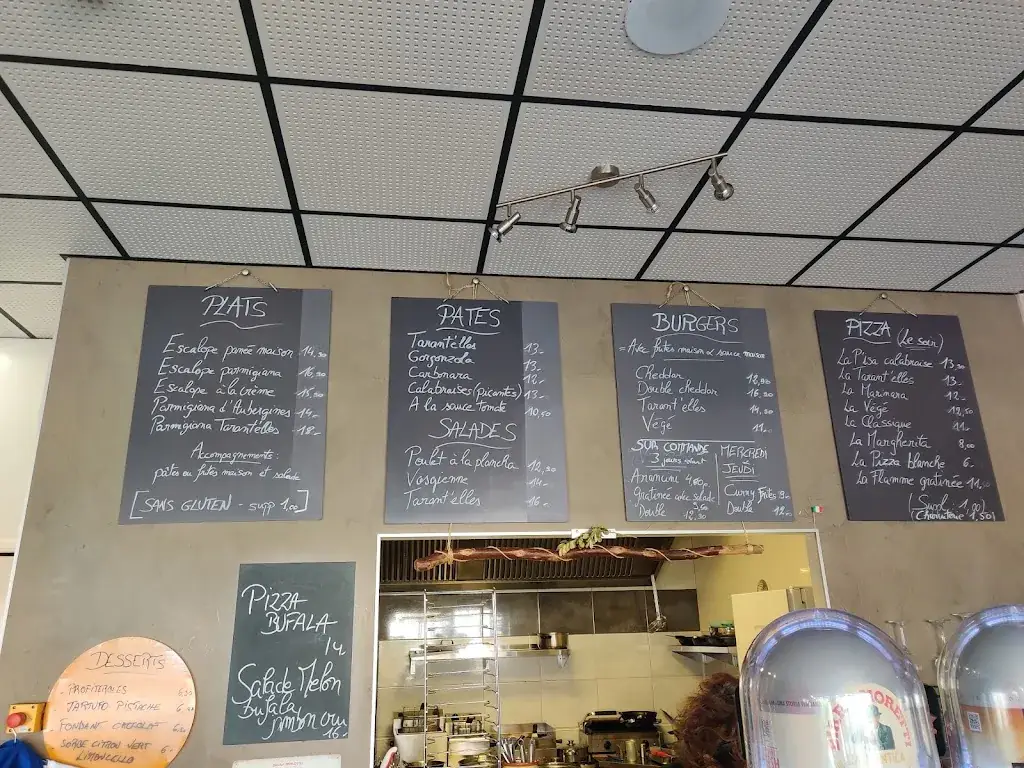 PLATS
Escalope panée maison 14,50
Escalope parmigiana 16,50
Escalope à la crème 15,50
Parmigiana d'Aubergines 14.-
Parmigiana Tarant'elles 18.-
Accompagnements:
pâtes ou frites maison et salade
[SANS GLUTEN - supp 1,00]
PATES
Tarant'elles 13.-
Gorgonzola 13.-
Carbonara 12.-
Calabraises (picantes) 13.-
A la sauce tomate 10,50
SALADES
Poulet à la plancha 12,50
Vosgienne 14.-
Tarant'elles 16.-
BURGERS
= Avec frites maison & sauce maison
Cheddar
Double cheddar 16,50
Tarant'elles 14,50
Végé 11.-
SUR COMMANDE
3 jours avant
Arancini
Gratinée avec salade
9,50
Double 12,50
MERCREDI
JEUDI
Curry Frites 9.-
Double 12.-
PIZZA (Le soir)
La P'isa calabraise 13,50
La Tarant'elles 13.-
La Marinara 12.-
La Végé 12,50
La Classique 11.-
La Margherita 8,00
La Pizza blanche 6.-
La Flamme gratinée 11,50
(Suppl. 1,00)
(Charcuterie 1,50)
PIZZA
BUFALA
14
Salade Melon
Bufala
jambon cru
16.-
DESSERTS
- PROFITEROLES 6,50
TARTUFO PISTACHE
- FONDANT CHOCOLAT
SORBET CITRON VERT
LIMONCELLO 6.-
BIRRA MORETTI